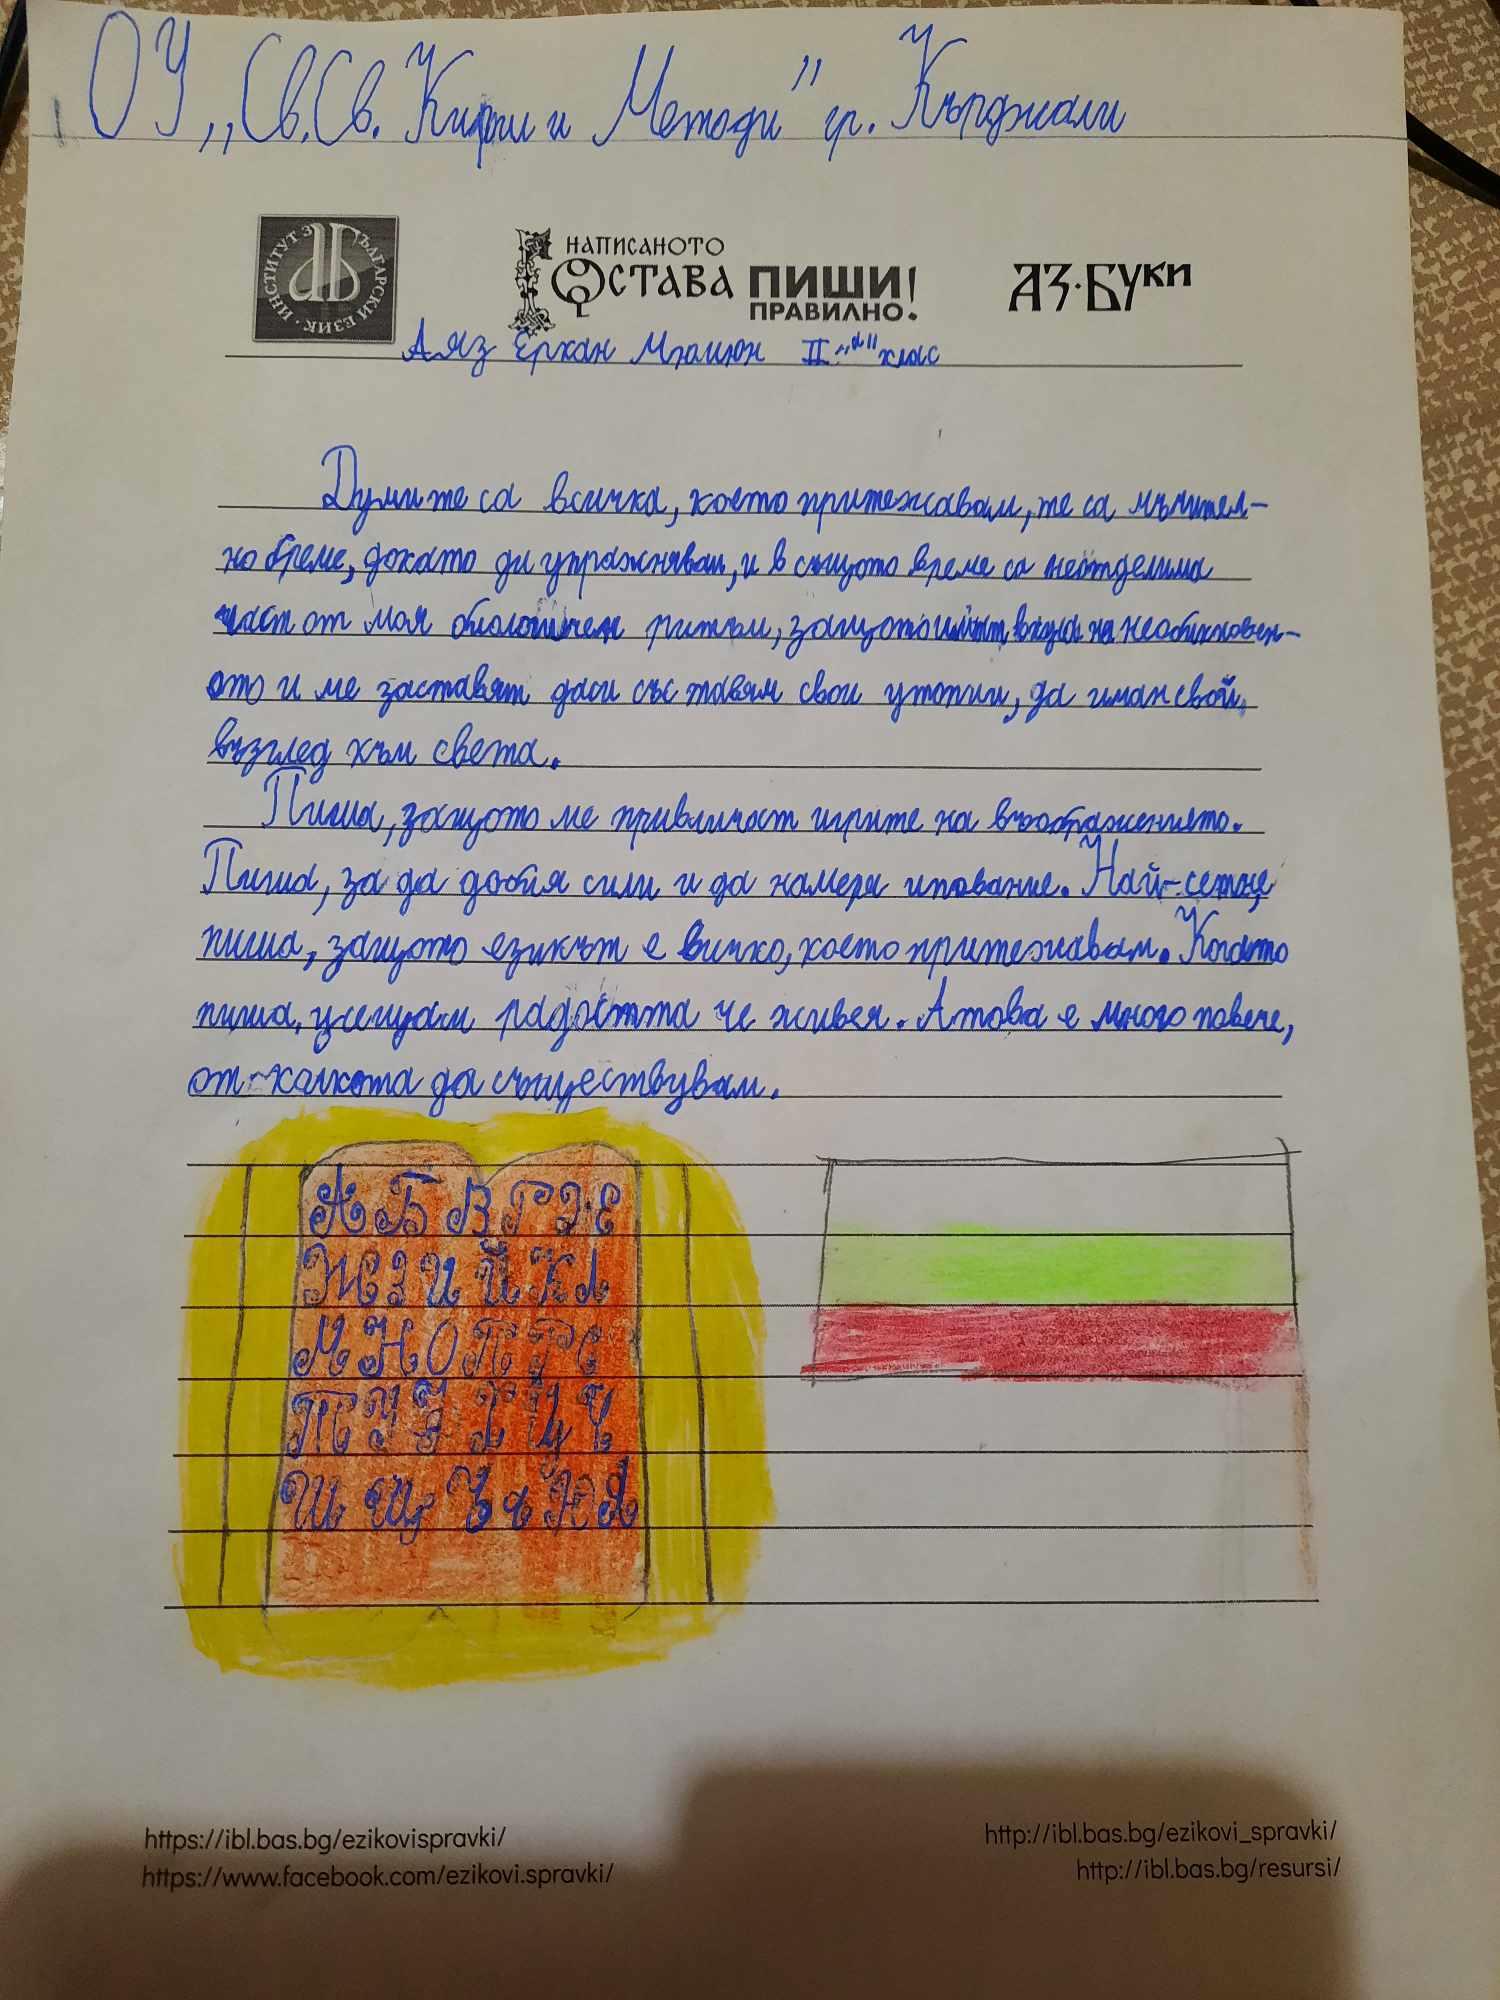 ОУ „Св.Св. Кирил и Методи" гр. Кърджали
ИНСТИТУТ ЗА БЪЛГАРСКИ ЕЗИК
НАПИСАНОТО
ОСТАВА ПИШИ
ПРАВИЛНО!
АЗ·БУКИ
Аяз Ерхан Мюмюн II „а" клас
Думите са всичка, което притежавам, те са мъчител-
но бреме, докато ги упражнявам, и в същото време са неотделима
част от моя биологичен ритъм, защото на необикновен-
ото и ме заставят даси със тавям свои утопии, да имам свой
възглед към света.
Пиша, защото ме привличат игрите на въображението.
Пиша, за да добия сили и да намеря упование. Най-сетне,
пиша, защото езикът е вичко, което притежавам. Когато
пиша, усещам радостта че живея. А това е много повече,
от-колкота да съществувам.
А Б В Г Д Е
Ж З И Й К Л
М Н О П Р С
Т У Ф Х Ц Ч
Ш Щ Ъ ь Ю Я
https://ibl.bas.bg/ezikovispravki/
http://ibl.bas.bg/ezikovi_spravki/
https://www.facebook.com/ezikovi.spravki/
http://ibl.bas.bg/resursi/